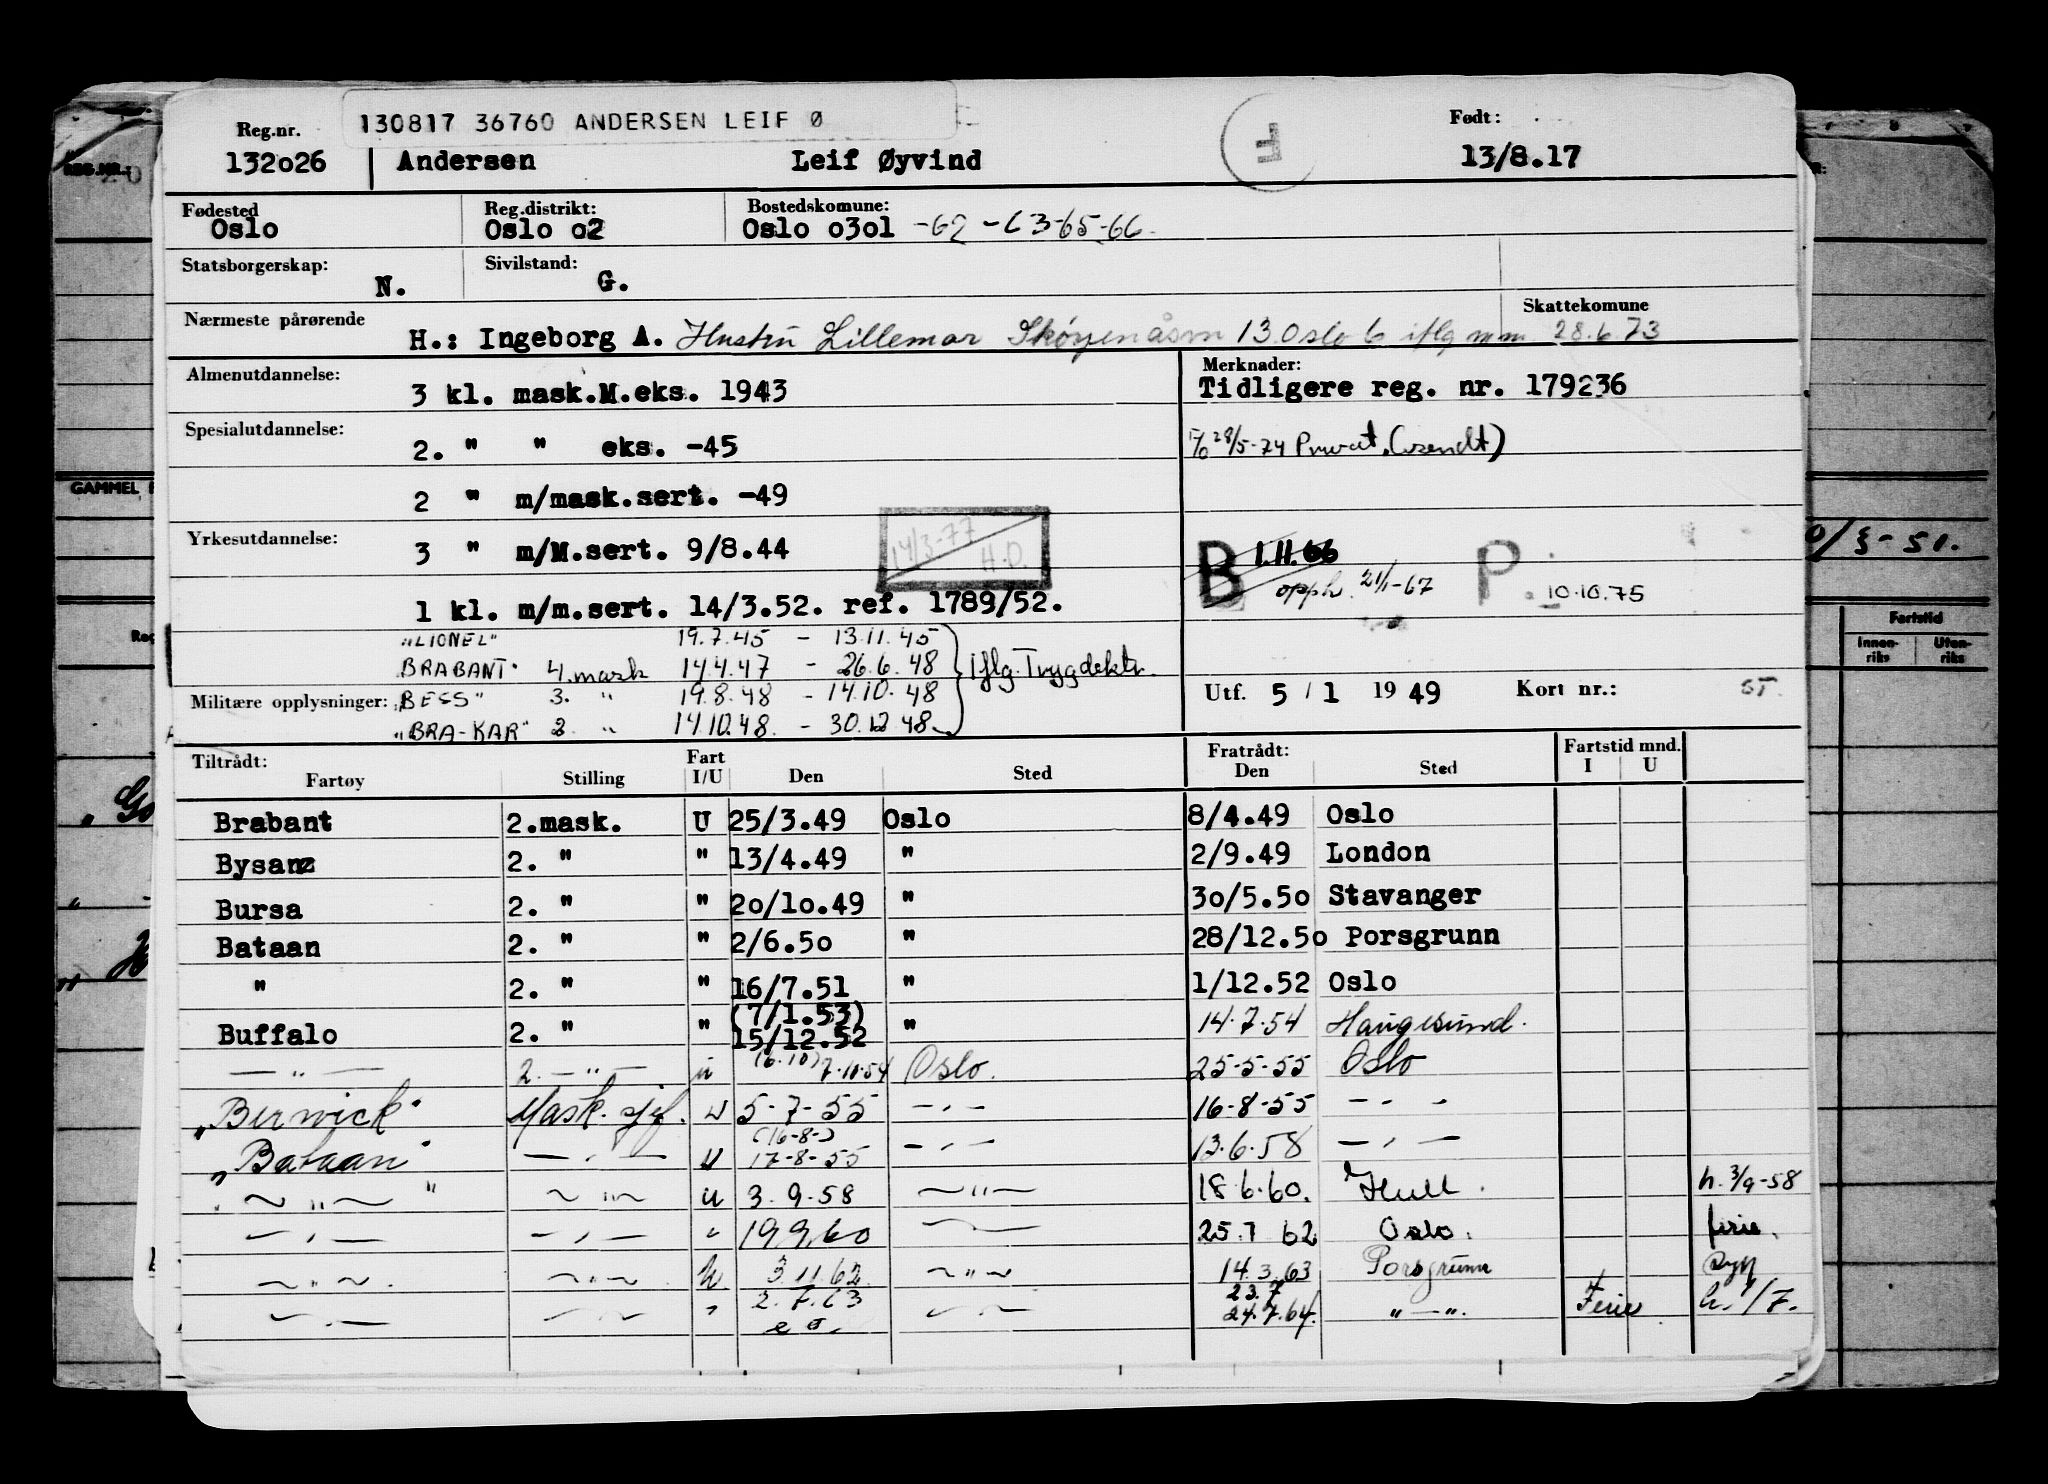 130817 36760 ANDERSEN LEIF Ø
Reg.nr. Født:
132o26 Andersen Leif Øyvind F 13/8.17
Fødested Reg.distrikt: Bostedskomune:
Oslo Oslo o2 Oslo o3ol -62 -63-65-66
Statsborgerskap: Sivilstand:
N. G.
Nærmeste pårørende Skattekomune
H.: Ingeborg A. Hustru Lillemor Skøyenåsvn 13 Oslo 6 iflg mm 28.6 73
Almenutdannelse: Merknader:
3 kl. mask.M.eks. 1943 Tidligere reg. nr. 179236
Spesialutdannelse:
2. " " eks. -45 28/5-74 Privat.
2 " m/mask.sert. -49
Yrkesutdannelse:
3 " m/M.sert. 9/8.44 14/3-77 H.O. B 1.11.66 P.
opph. 21/1-67 10.10.75
1 kl. m/m.sert. 14/3.52. ref. 1789/52.
"LIONEL" 19.7.45 - 13.11.45
BRABANT" 4. mask 14.4.47 - 26.6.48 Iflg. Trygdektr.
Militære opplysninger: "BESS" 3. " 19.8.48 - 14.10.48
"BRA-KAR" 2 " 14.10.48. - 30.12.48
Utf. 5 / 1 19 49 Kort nr.: ST.
Tiltrådt: Fart Fratrådt: Fartstid mnd.
Fartøy Stilling I/U Den Sted Den Sted I U
Brabant 2.mask. U 25/3.49 Oslo 8/4.49 Oslo
Bysanz 2. " " 13/4.49 " 2/9.49 London
Bursa 2. " " 2o/1o.49 " 3o/5.5o Stavanger
Bataan 2. " " 2/6.5o " 28/12.5o Porsgrunn
" 2. " " 16/7.51 " 1/12.52 Oslo
(7/1.53)
Buffalo 2. " " 15/12.52 " 14.7.54 Haugesund.
— " — 2. — " — u (6.10) 7.10.54 Oslo. 25-5-55 Oslo
"Berwick" Mask. sjef. u 5-7-55 — " — 16-8-55 — " —
(16-8-)
"Bataan" — " — u 17-8-55 — " — 13.6.58 — " —
— " — " — " — u 3.9-58 — " — 18.6.60. Hull. h. 3/9-58
— " — — " — " 19.9.60 — 25.7 62 Oslo. ferie.
— " — . — " — . u 3.11.62. — " — 14.3.63 Porsgrunn syk
23.7
— " — — " — " 2.7.63 — " — 24.7.64. " — ". Ferie h. 1/7.
GAMMEL
Fartstid
Innen-riks Uten-riks